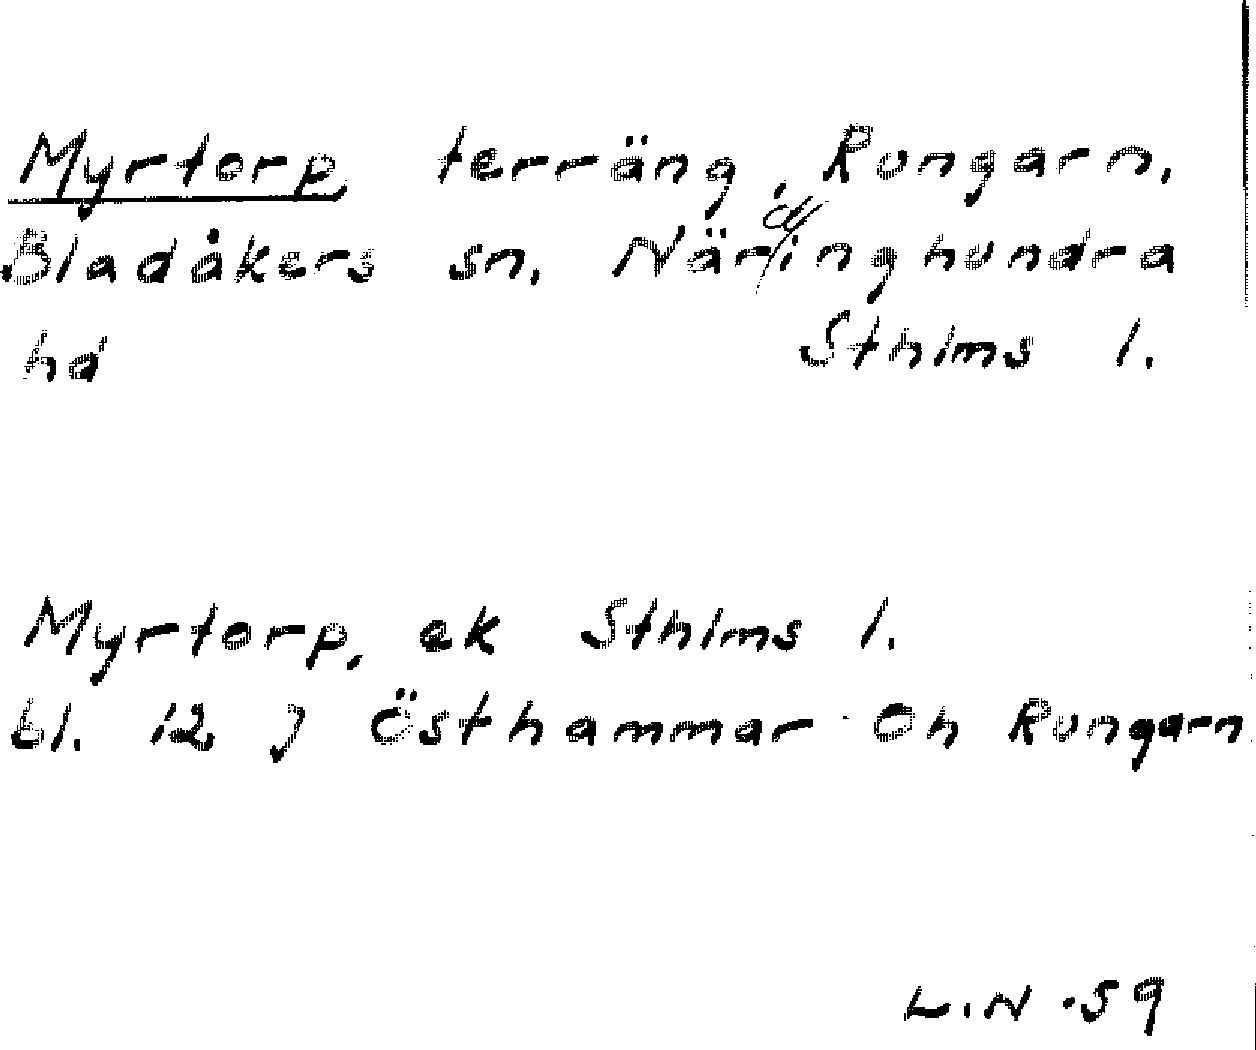 Myrtorp, terräng, Rungarn,
Bladåkers sn. Närdinghundra
hd Sthlms l.
Myrtorp, ek Sthlms l.
bl. 12 J Östhammar Öh Rungarn
L.N -59